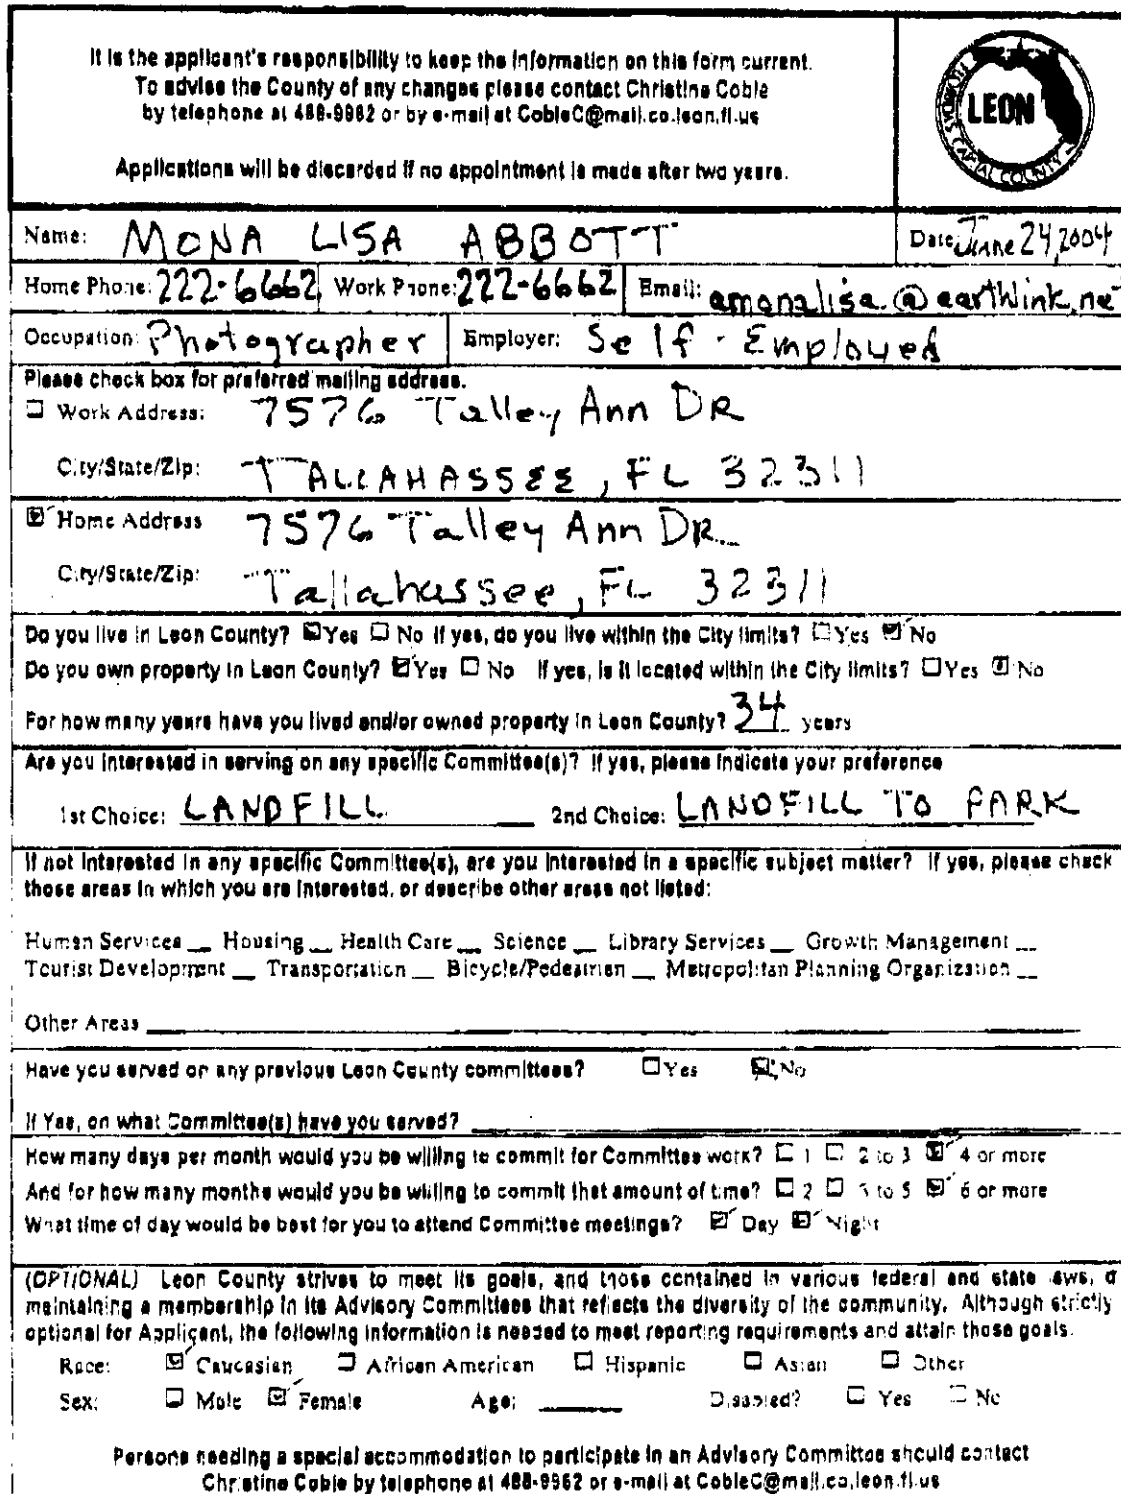 It is the applicant's responsibility to keep the information on this form current.
To advise the County of any changes please contact Christine Coble
by telephone at 488-9962 or by e-mail at CobleC@mail.co.leon.fl.us
Applications will be discarded if no appointment is made after two years.
LEON
CAPITAL COUNTY
Name: MONA LISA ABBOTT Date: June 24, 2004
Home Phone: 222-6662 Work Phone: 222-6662 Email: amonalisa@earthlink.net
Occupation: Photographer Employer: Self-Employed
Please check box for preferred mailing address.
☐ Work Address: 7576 Talley Ann DR
City/State/Zip: TALLAHASSEE, FL 32311
☑ Home Address 7576 Talley Ann DR
City/State/Zip: Tallahassee, FL 32311
Do you live in Leon County? ☑ Yes ☐ No If yes, do you live within the City limits? ☐ Yes ☑ No
Do you own property in Leon County? ☑ Yes ☐ No If yes, is it located within the City limits? ☐ Yes ☑ No
For how many years have you lived and/or owned property in Leon County? 34 years
Are you interested in serving on any specific Committee(s)? If yes, please indicate your preference
1st Choice: LANDFILL 2nd Choice: LANDFILL TO PARK
If not interested in any specific Committee(s), are you interested in a specific subject matter? If yes, please check
those areas in which you are interested, or describe other areas not listed:
Human Services __ Housing __ Health Care __ Science __ Library Services __ Growth Management __
Tourist Development __ Transportation __ Bicycle/Pedestrian __ Metropolitan Planning Organization __
Other Areas
Have you served on any previous Leon County committees? ☐ Yes ☑ No
If Yes, on what Committee(s) have you served?
How many days per month would you be willing to commit for Committee work? ☐ 1 ☐ 2 to 3 ☑ 4 or more
And for how many months would you be willing to commit that amount of time? ☐ 2 ☐ 3 to 5 ☑ 6 or more
What time of day would be best for you to attend Committee meetings? ☑ Day ☑ Night
(OPTIONAL) Leon County strives to meet its goals, and those contained in various federal and state laws, of
maintaining a membership in its Advisory Committees that reflects the diversity of the community. Although strictly
optional for Applicant, the following information is needed to meet reporting requirements and attain those goals.
Race: ☑ Caucasian ☐ African American ☐ Hispanic ☐ Asian ☐ Other
Sex: ☐ Male ☑ Female Age: ____ Disabled? ☐ Yes ☐ No
Persons needing a special accommodation to participate in an Advisory Committee should contact
Christine Coble by telephone at 488-9962 or e-mail at CobleC@mail.co.leon.fl.us